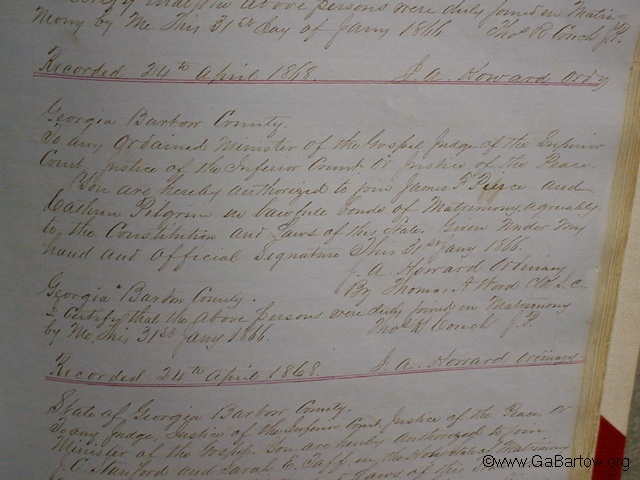 above persons were duly joined in Matri-
mony by Me This 31st day of Jany 1866 Thos R Couch J.P.
Recorded 24th April 1868. J. A. Howard Ordny
Georgia Bartow County.
To any Ordained Minister of the Gospel, Judge of the Superior
Court Justice of the Inferior Court or Justice of the Peace.
You are hereby authorized to join James F Pierce and
Cathrin Pilgrim in lawfull bonds of Matrimony, agreeably
to the Constitution and Laws of this State. Given Under My
hand and official Signature This 31st Jany 1866.
J A Howard Ordinary
By Thomas A Word Clk S.C.
Georgia Bartow County.
I Certify that the above Persons were duly joined in Matrimony
by Me, This 31st Jany 1866. Thos R Couch J.P.
Recorded 24th April 1868. J. A. Howard Ordinary
State of Georgia Bartow County.
To any Judge, Justice of the Inferior Court, Justice of the Peace, Or
Minister of the Gospel. You are hereby authorized to join
and Sarah E. in the State of Matrimony
Laws of this
©www.GaBartow.org